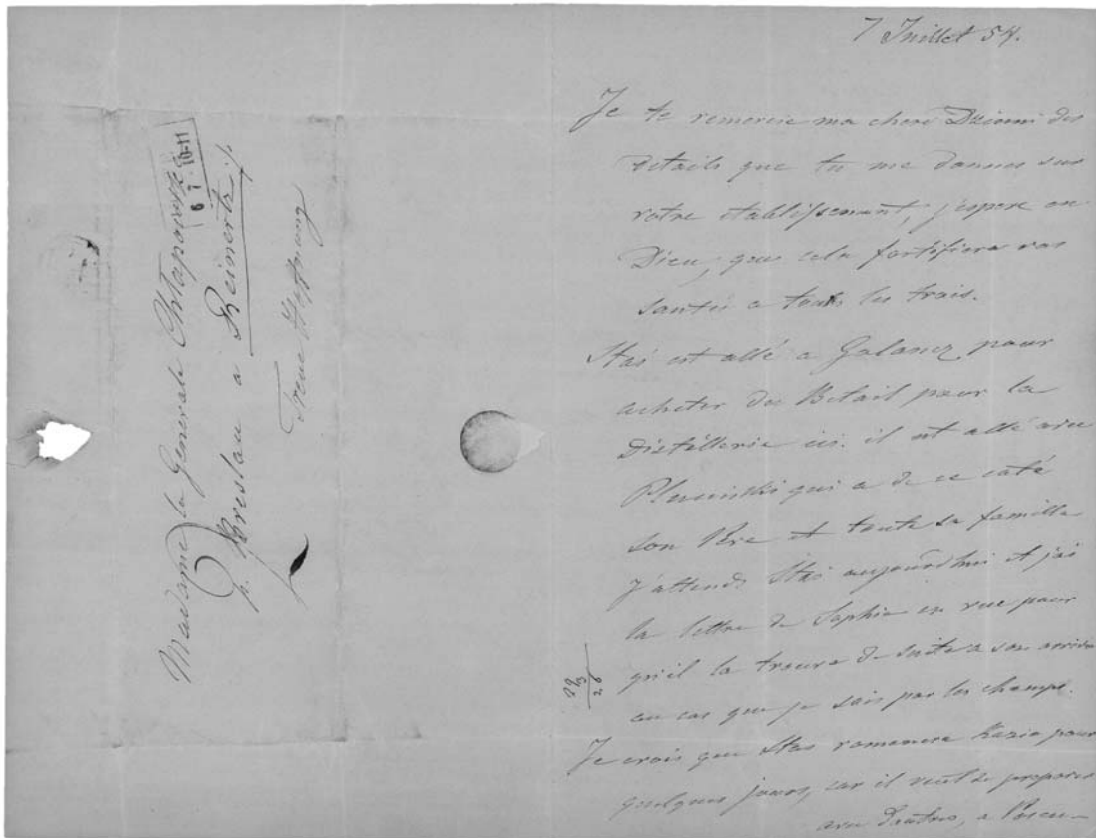 Madame la Generale Chłapowska
6 7 10-11
p. Breslau a Reinertz
7 Juillet 54.
Je te remercie ma chere Dziunni des
details que tu me donnes sur
votre etablissement, j'espere en
Dieu, que cela fortifiera vos
santés a touts les trois.
Stas est allé a Galancz pour
acheter du Betail pour la
Distillerie ici. il est allé avec
qui a de ce coté
son Père et toute sa famille
J'attends Stas aujourdhui et j'ai
la lettre de Sophie en vue pour
qu'il la trouve de suite a son arrivée
au cas que je sois par les champs.
Je crois que Stas ramenera Kazio pour
quelques jours, car il veut se preparer
avec d'autres, a